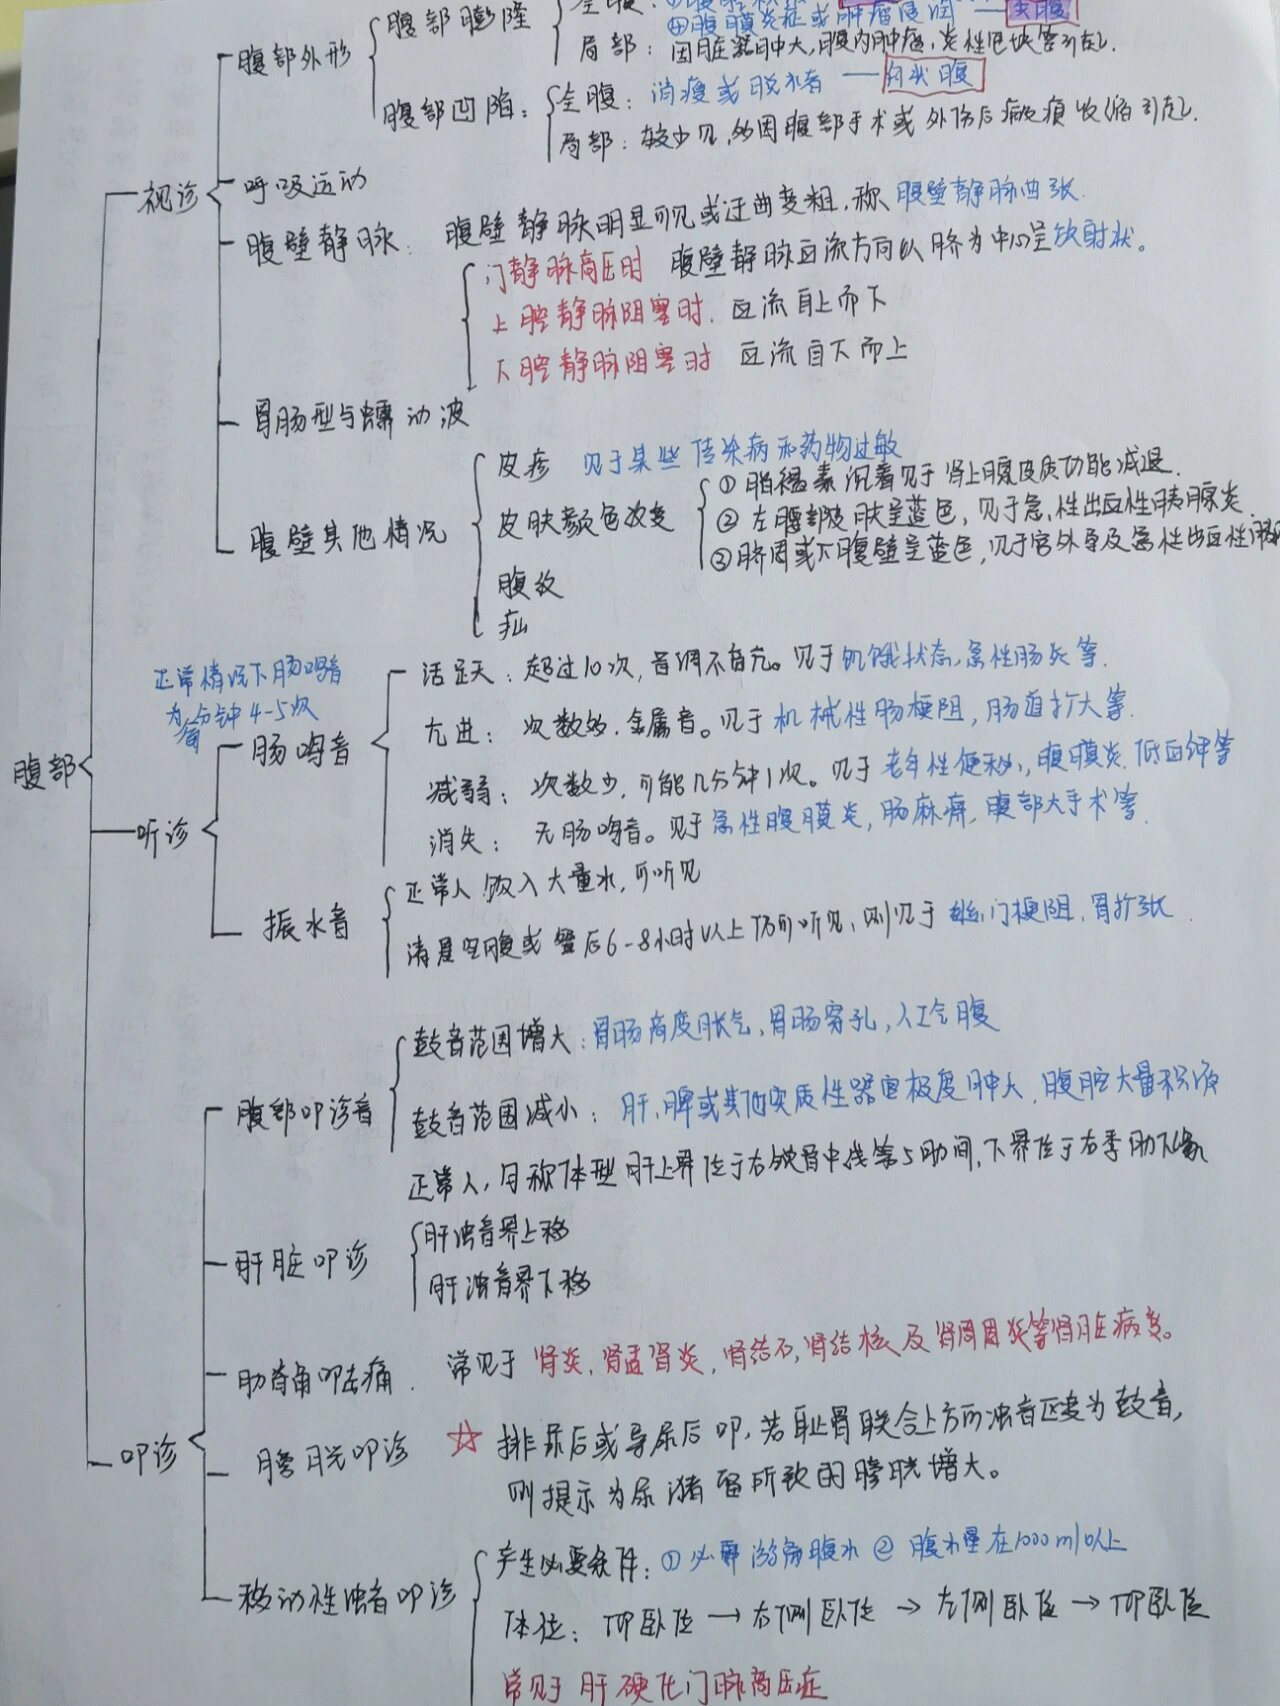 腹部
视诊
腹部外形
腹部膨隆
全腹:
④腹膜炎症或肿瘤浸润 —
局部:因脏器肿大,腹内肿瘤,炎性包块等引起.
腹部凹陷:
全腹:消瘦或脱水者 — 舟状腹
局部:较少见,多因腹部手术或外伤后瘢痕收缩引起.
呼吸运动
腹壁静脉:腹壁静脉明显可见或迂曲变粗,称腹壁静脉曲张.
门静脉高压时 腹壁静脉血流方向以脐为中心呈放射状。
上腔静脉阻塞时.血流自上而下
下腔静脉阻塞时 血流自下而上
胃肠型与蠕动波
腹壁其他情况
皮疹 见于某些传染病和药物过敏
皮肤颜色改变
①脂褐素沉着见于肾上腺皮质功能减退.
②左腰部皮肤呈蓝色,见于急性出血性胰腺炎
③脐周或下腹壁呈蓝色,见于宫外孕及急性出血性
腹纹
疝
听诊
正常情况下肠鸣音
为每分钟4-5次
肠鸣音
活跃:超过10次,音调不高亢。见于饥饿状态,急性肠炎等.
亢进:次数多,金属音。见于机械性肠梗阻,肠道扩大等.
减弱:次数少,可能几分钟1次。见于老年性便秘,腹膜炎,低血钾等
消失:无肠鸣音。见于急性腹膜炎,肠麻痹,腹部大手术等.
振水音
正常人饮入大量水,可听见
清晨空腹或餐后6-8小时以上仍可听见,则见于幽门梗阻,胃扩张
叩诊
腹部叩诊音
鼓音范围增大:胃肠高度胀气,胃肠穿孔,人工气腹
鼓音范围减小:肝,脾或其他实质性器官极度肿大,腹腔大量积液
肝脏叩诊
正常人,匀称体型肝上界位于右锁骨中线第5肋间,下界位于右季肋下缘
肝浊音界上移
肝浊音界下移
肋脊角叩击痛.常见于肾炎,肾盂肾炎,肾结石,肾结核及肾周围炎等肾脏病变。
膀胱叩诊 ☆排尿后或导尿后叩,若耻骨联合上方的浊音区变为鼓音,
则提示为尿潴留所致的膀胱增大。
移动性浊音叩诊
产生必要条件:①必需游离腹水 ②腹水量在1000ml以上
体位:仰卧位→右侧卧位→左侧卧位→仰卧位
常见于肝硬化门脉高压症